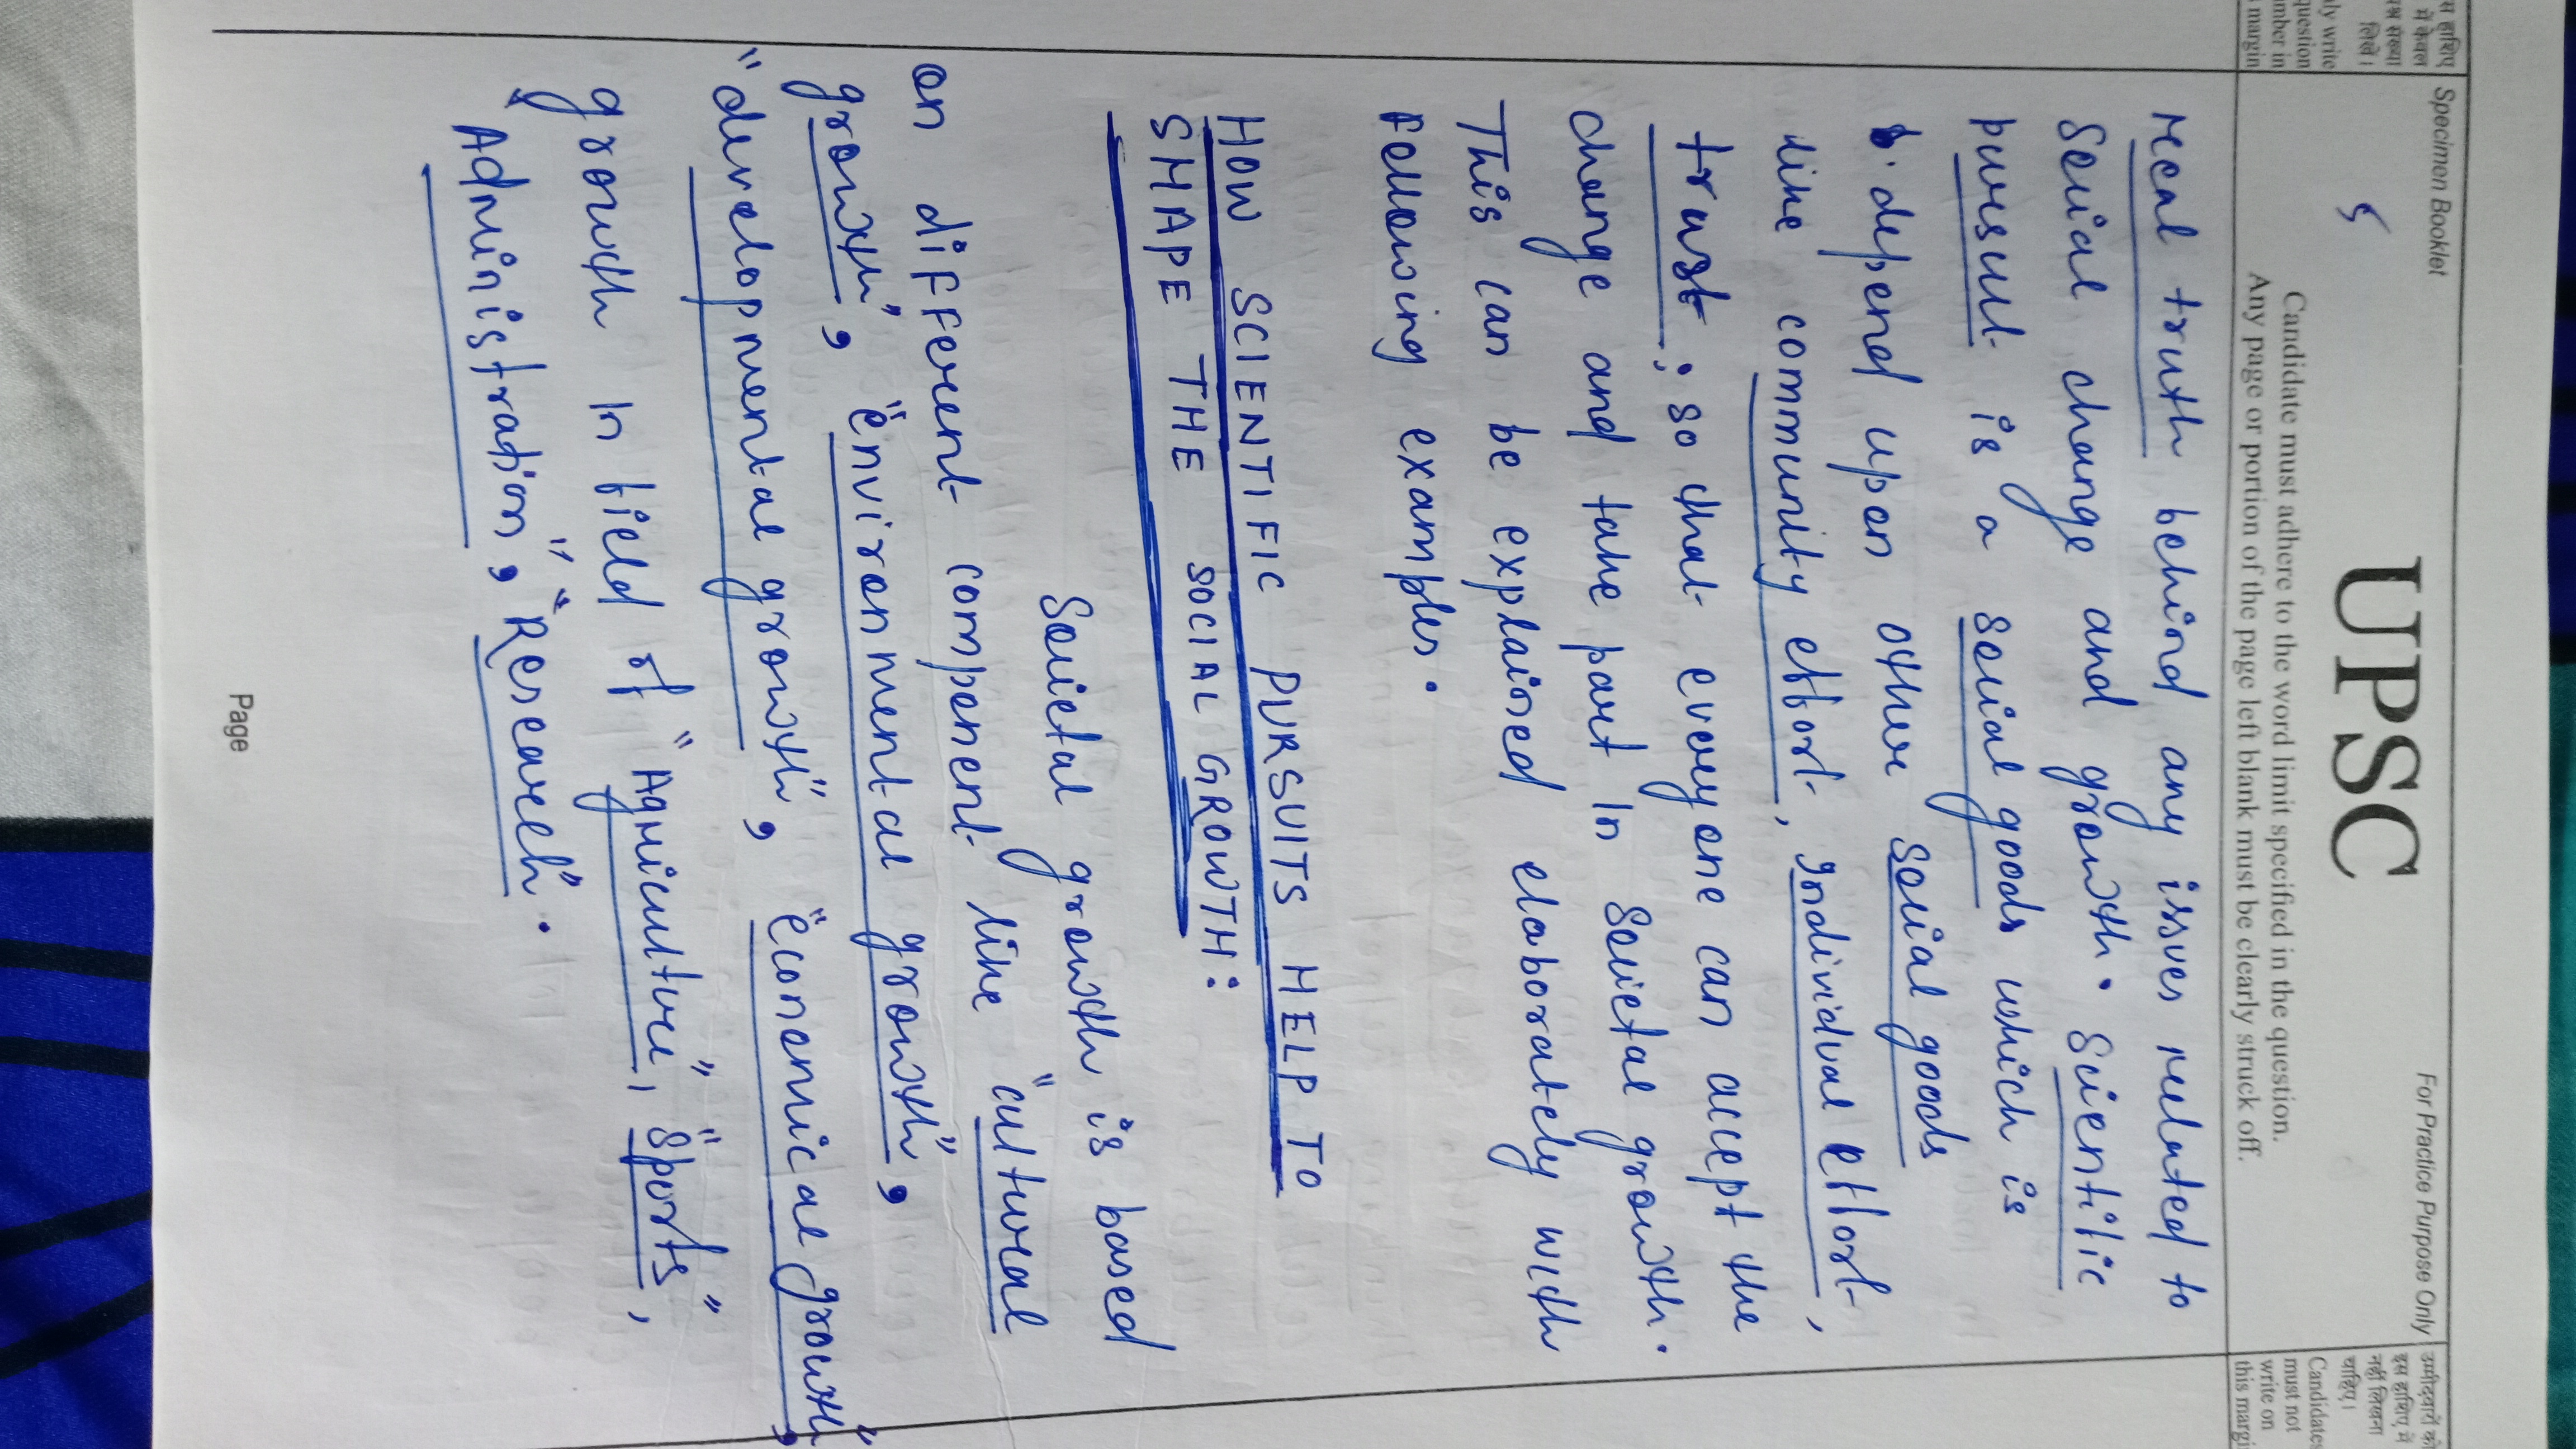 Specimen Booklet
UPSC
For Practice Purpose Only
Candidate must adhere to the word limit specified in the question.
Any page or portion of the page left blank must be clearly struck off.
स हाशिए
में केवल
श्न संख्या
लिखें।
ly write
question
mber in
margin
उम्मीदवारों को
इस हाशिए में
नहीं लिखना
चाहिए।
Candidates
must not
write on
this margi
5
real truth behind any issues related to
Social change and growth. Scientific
pursuit is a social goods which is
depend upon other social goods
like community effort, Individual effort,
trust; so that everyone can accept the
change and take part in Societal growth.
This can be explained elaborately with
Following examples.
HOW SCIENTIFIC PURSUITS HELP TO
SHAPE THE SOCIAL GROWTH:
Societal growth is based
on different component like "cultural
growth", "environmental growth",
"developmental growth", "economical growth",
growth in field of "Agriculture", "Sports",
Administration", "Research".
Page